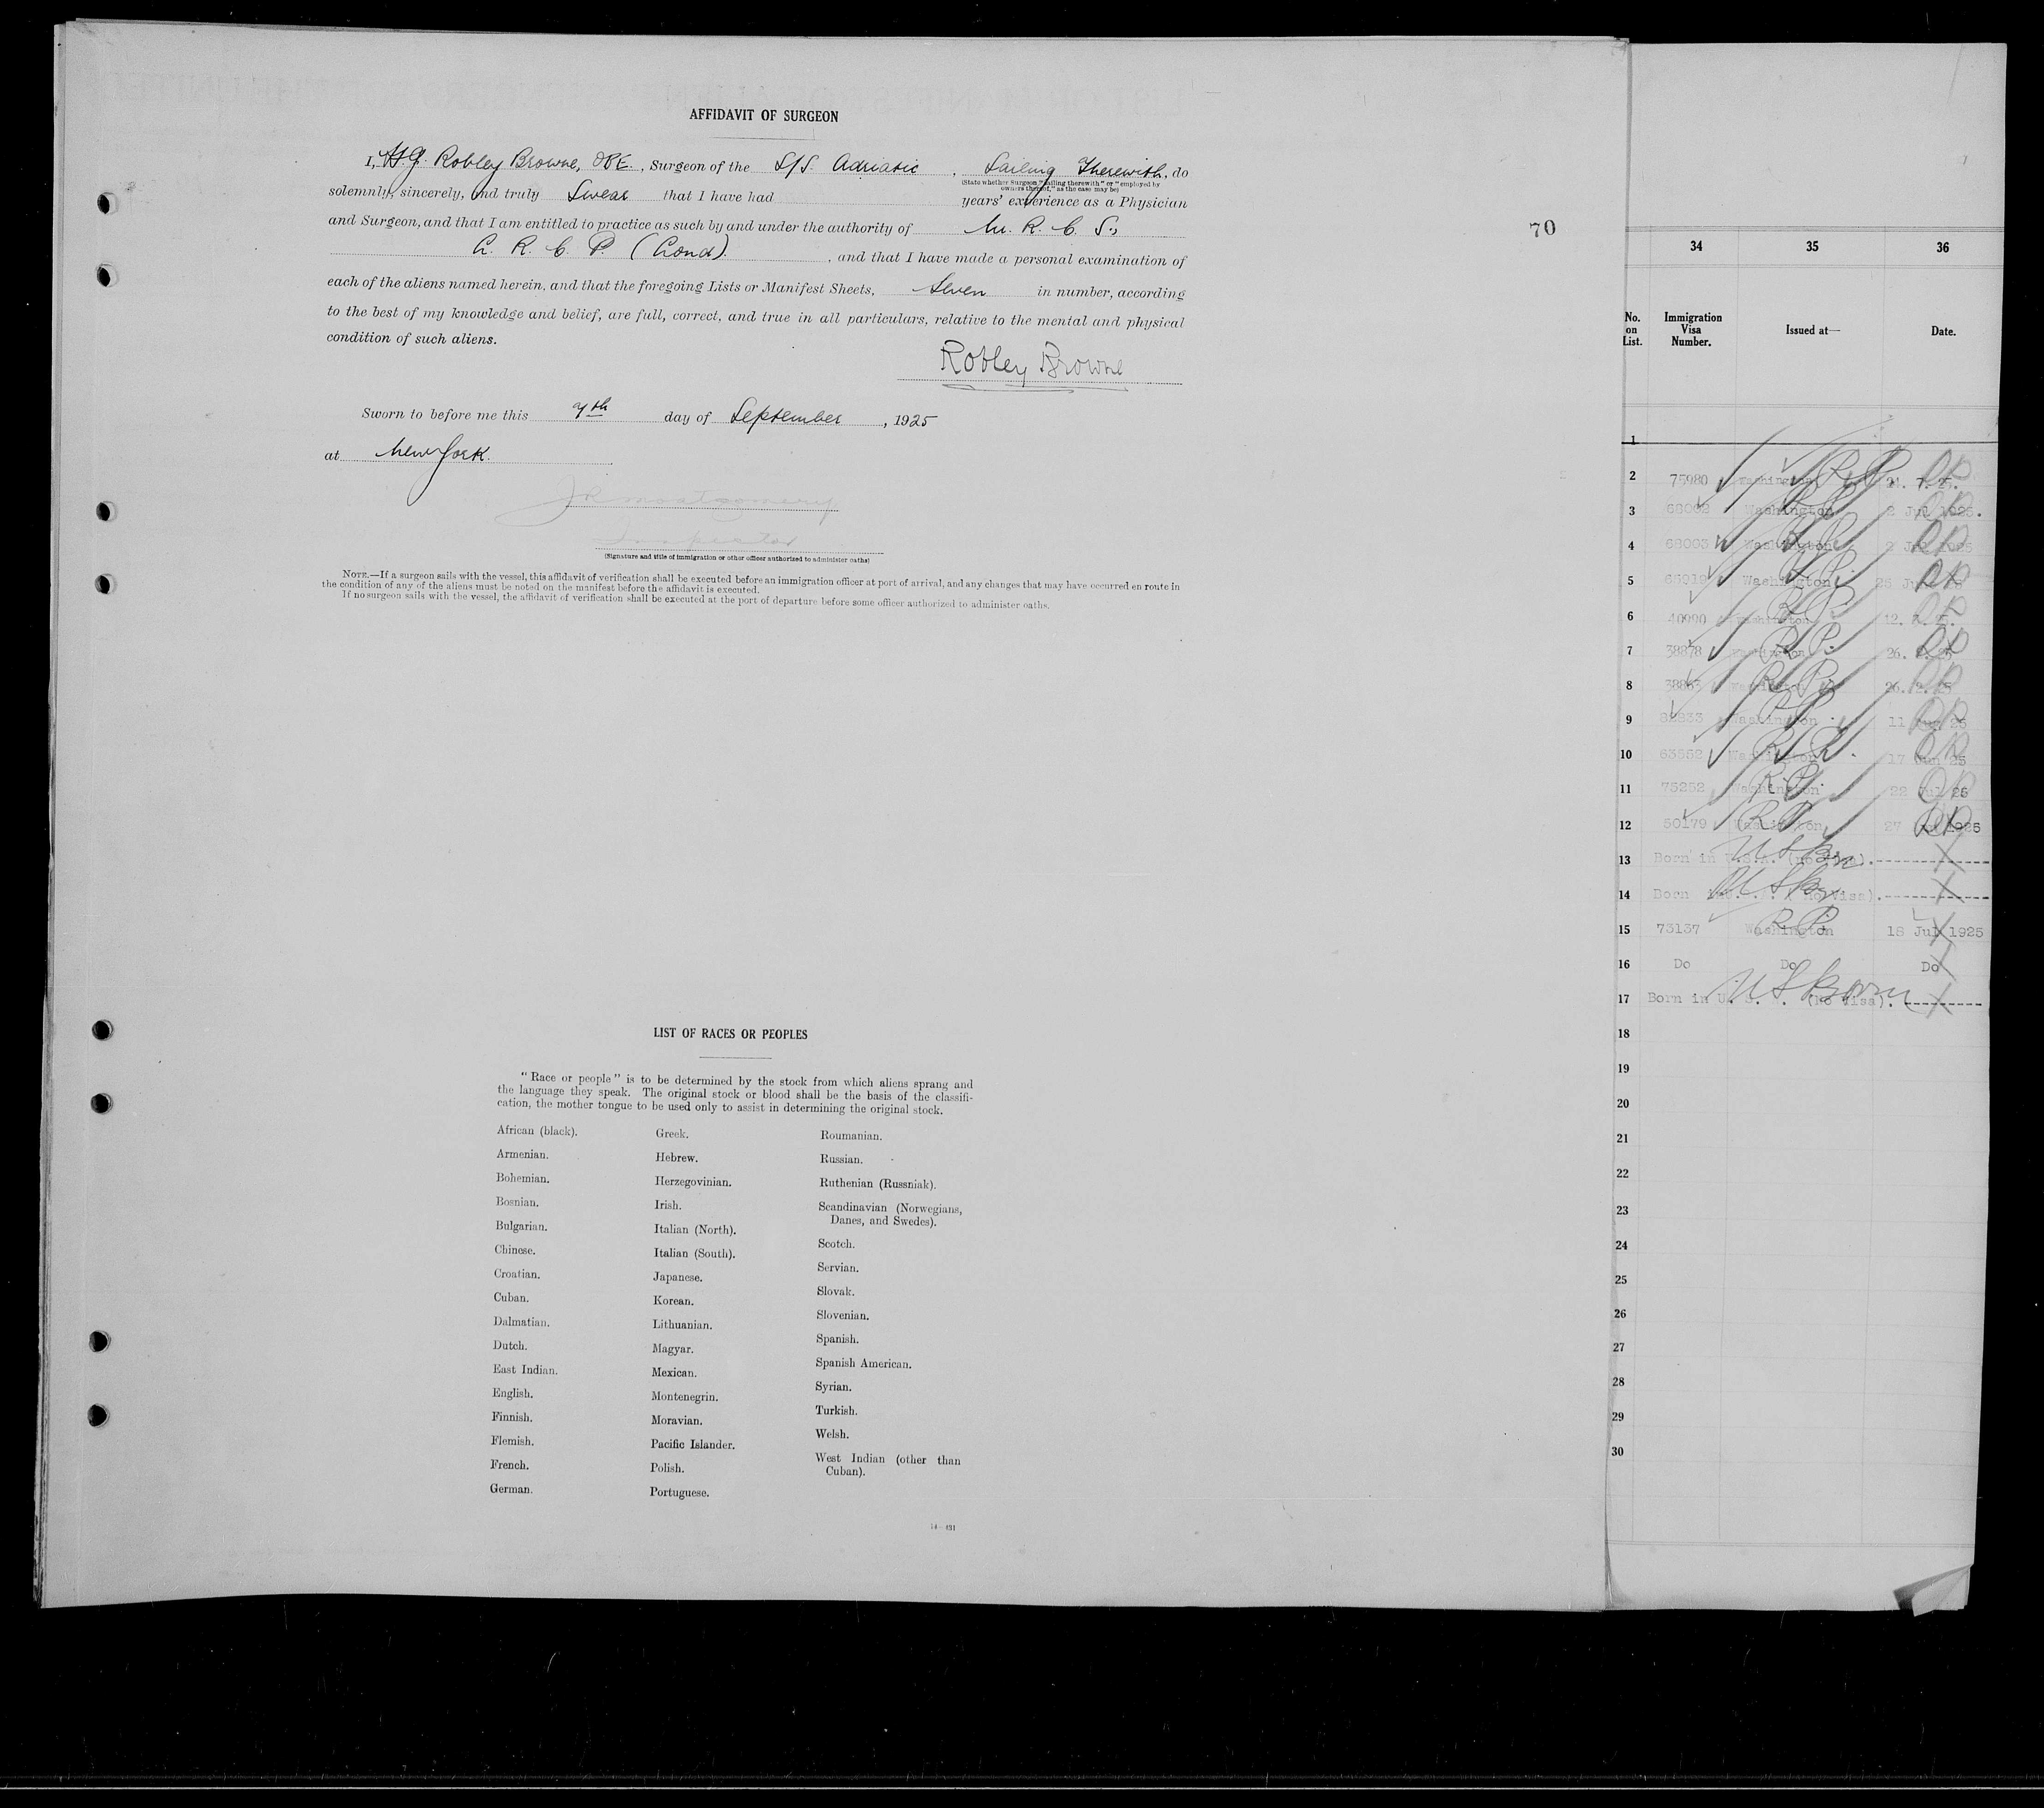 AFFIDAVIT OF SURGEON
I, H.G. Robley Browne, OBE., Surgeon of the S/S. Adriatic, Sailing Therewith, do
(State whether Surgeon "sailing therewith" or "employed by
owners thereof," as the case may be)
solemnly, sincerely, and truly Swear that I have had years' experience as a Physician
and Surgeon, and that I am entitled to practice as such by and under the authority of M. R. C. S.,
L. R. C. P. (Lond)., and that I have made a personal examination of
each of the aliens named herein, and that the foregoing Lists or Manifest Sheets, Seven in number, according
to the best of my knowledge and belief, are full, correct, and true in all particulars, relative to the mental and physical
condition of such aliens.
Robley Browne
Sworn to before me this 7th day of September, 1925
at New York.
JR Montgomery
Inspector
(Signature and title of immigration or other officer authorized to administer oaths)
NOTE.—If a surgeon sails with the vessel, this affidavit of verification shall be executed before an immigration officer at port of arrival, and any changes that may have occurred en route in
the condition of any of the aliens must be noted on the manifest before the affidavit is executed.
If no surgeon sails with the vessel, the affidavit of verification shall be executed at the port of departure before some officer authorized to administer oaths.
70
LIST OF RACES OR PEOPLES
"Race or people" is to be determined by the stock from which aliens sprang and
the language they speak. The original stock or blood shall be the basis of the classifi-
cation, the mother tongue to be used only to assist in determining the original stock.
African (black).
Armenian.
Bohemian.
Bosnian.
Bulgarian.
Chinese.
Croatian.
Cuban.
Dalmatian.
Dutch.
East Indian.
English.
Finnish.
Flemish.
French.
German.
Greek.
Hebrew.
Herzegovinian.
Irish.
Italian (North).
Italian (South).
Japanese.
Korean.
Lithuanian.
Magyar.
Mexican.
Montenegrin.
Moravian.
Pacific Islander.
Polish.
Portuguese.
Roumanian.
Russian.
Ruthenian (Russniak).
Scandinavian (Norwegians,
Danes, and Swedes).
Scotch.
Servian.
Slovak.
Slovenian.
Spanish.
Spanish American.
Syrian.
Turkish.
Welsh.
West Indian (other than
Cuban).
34 35 36
No.
on
List.
Immigration
Visa
Number.
Issued at—
Date.
1
2 75980 Washington RP
3 Washington RP 2 Jul 1925.
4 68003 Washington RP 2 Jul 1925
5 Washington RP
6 40990 Washington RP
7 38878 Washington RP
8 Washington RP
9 Washington RP
10 63652 Washington RP 17 Jun 25
11 75252 Washington RP 22 Jul 25
12 50179 Washington RP 1925
13 Born in U.S.A. (no visa). US Born
14 Born in U.S.A. (No Visa). US Born
15 73137 Washington RP 18 Jul 1925
16 Do Do Do
17 Born in U. S. A. (No Visa). US Born
18
19
20
21
22
23
24
25
26
27
28
29
30